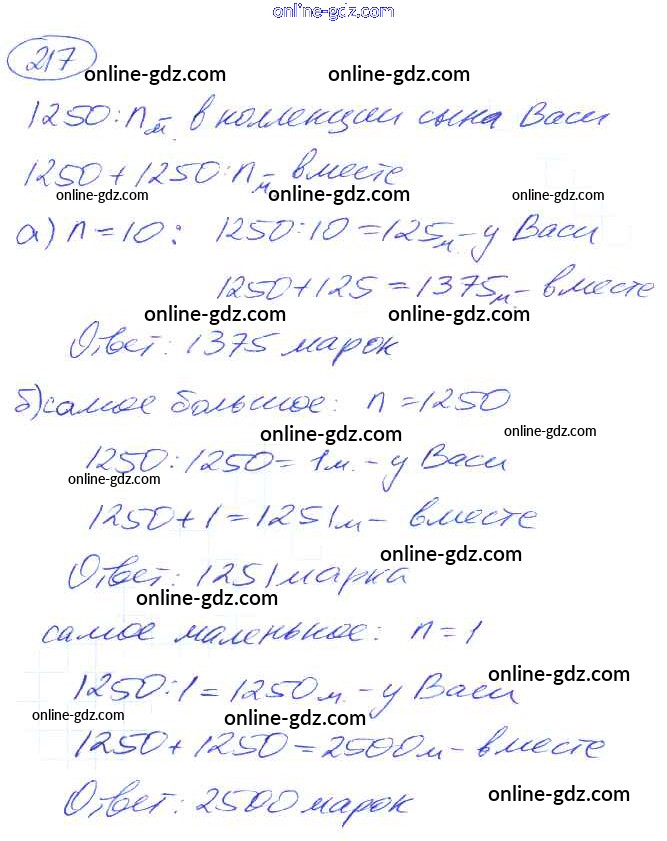 online-gdz.com
217
online-gdz.com online-gdz.com
1250:n м. в коллекции сына Васи
1250+1250:n м - вместе
online-gdz.com online-gdz.com online-gdz.com
а) n=10: 1250:10=125 м - у Васи
1250+125=1375 м - вместе
online-gdz.com online-gdz.com
Ответ: 1375 марок
б) самое большое: n=1250
online-gdz.com online-gdz.com
1250:1250=1 м. - у Васи
online-gdz.com
1250+1=1251 м - вместе
online-gdz.com
Ответ: 1251 марка
online-gdz.com
самое маленькое: n=1
online-gdz.com
1250:1=1250 м. - у Васи
online-gdz.com online-gdz.com
1250+1250=2500 м - вместе
online-gdz.com
Ответ: 2500 марок